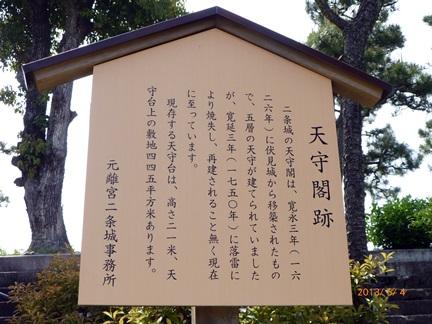 天守閣跡
二条城の天守閣は、寛永三年（一六
二六年）に伏見城から移築されたもの
で、五層の天守が建てられていました
が、寛延三年（一七五〇年）に落雷に
より焼失し、再建されること無く現在
に至っています。
現存する天守台は、高さ二一米、天
守台上の敷地四四五平方米あります。
元離宮二条城事務所
2013/5/4